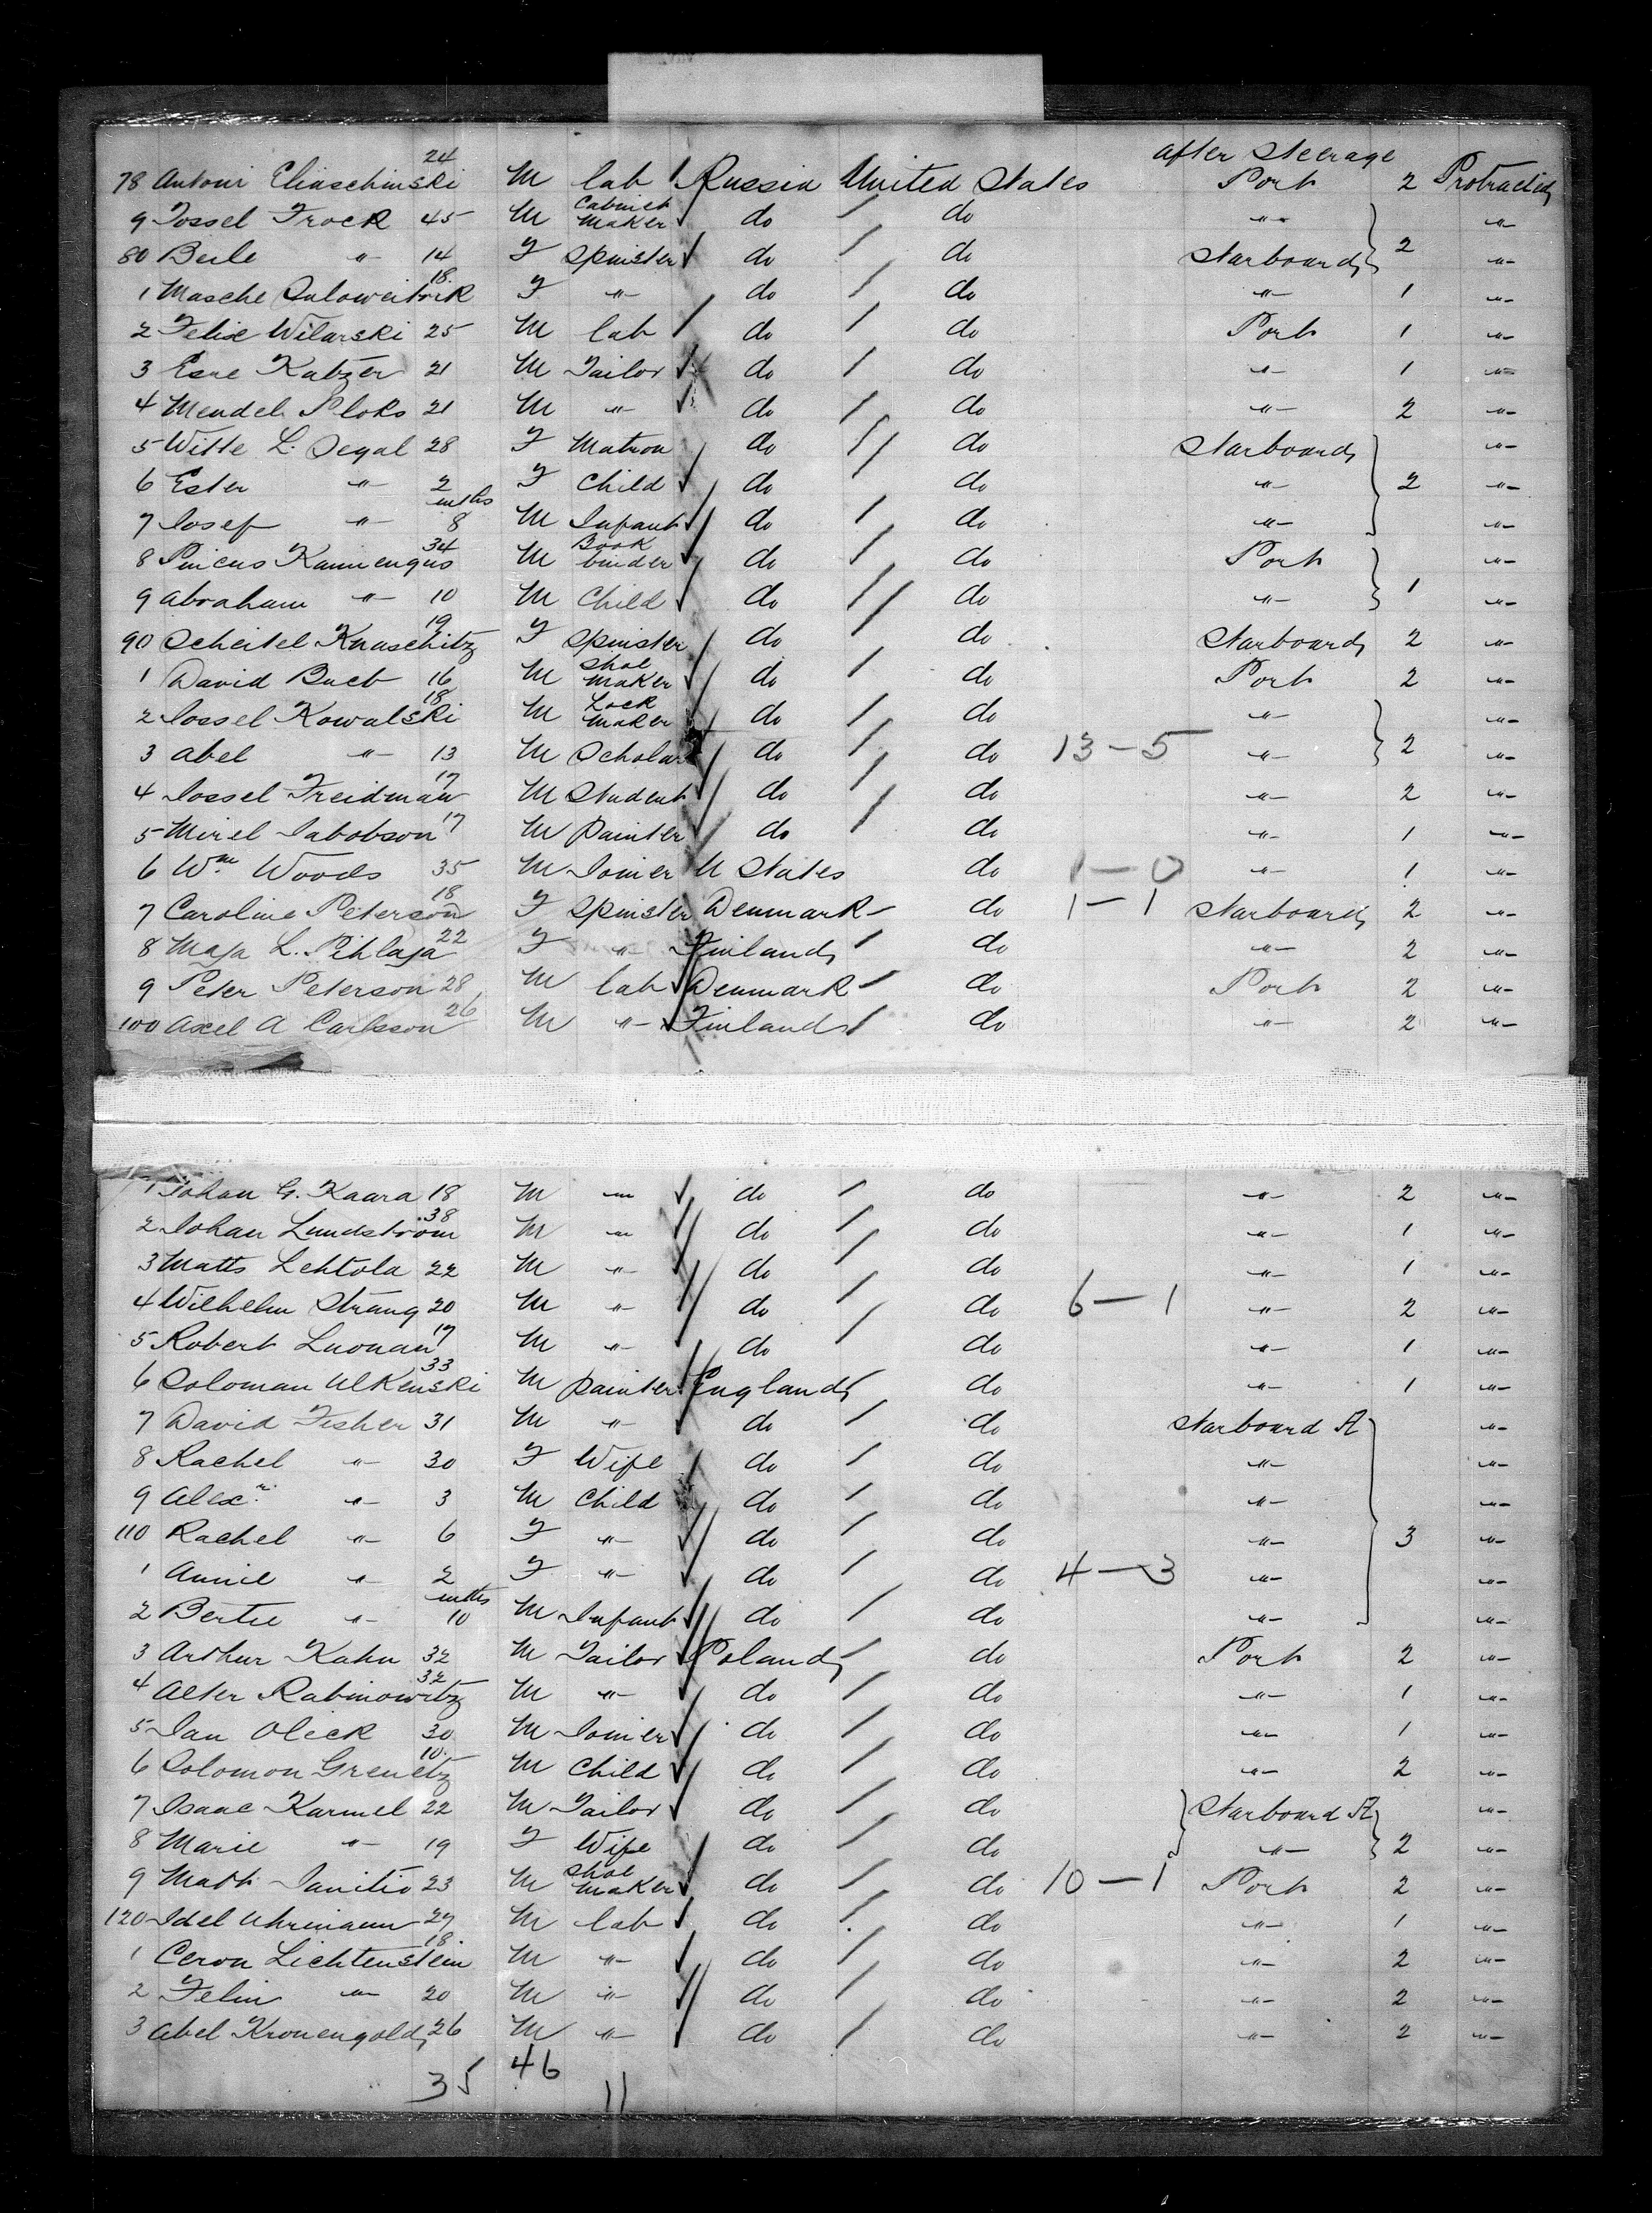 after Steerage
78 Antoni Eliaschinski 24 M lab Russia United States Port 2 Protracted
9 Jossel Trock 45 M Cabinet Maker do do " }
80 Beile " 14 F Spinster do do Starboard } 2 "
1 Masche 18 F " do do " 1 "
2 Felix Wilarski 25 M lab do do Port 1 "
3 Esne Katzer 21 M Tailor do do " 1 "
4 Mendel Ploks 21 M " do do " 2 "
5 Witte L. Segal 28 F Matron do do Starboard "
6 Ester " 2 F Child do do " 2 "
7 Josef " mths 8 M Infant do do " "
8 Pincus Kannengus 34 M Book binder do do Port "
9 Abraham " 10 M Child do do " 1 "
90 Scheitel Knaschitz 19 F Spinster do do Starboard 2 "
1 David Bach 16 M Shoe Maker do do Port 2 "
2 Jossel Kowalski 18 M Lock Maker do do " "
3 Abel " 13 M Scholar do do 13-5 " 2 "
4 Jossel Freidman 17 M Student do do " 2 "
5 Mirel Jabobson 17 M Painter do do " 1 "
6 Wm Woods 35 M Joiner U States do 1-0 " 1 "
7 Caroline Peterson 18 F Spinster Denmark do 1-1 Starboard 2 "
8 Maja L. Pihlaja 22 F " Finland do " 2 "
9 Peter Peterson 28 M lab Denmark do Port 2 "
100 Axel A Carlsson 26 M " Finland do " 2 "
1 Johan G. Kaara 18 M " do do " 2 "
2 Johan Lundstrom 38 M " do do " 1 "
3 Matts Lehtola 22 M " do do " 1 "
4 Wilhelm Strang 20 M " do do 6-1 " 2 "
5 Robert Luonan 17 M " do do " 1 "
6 Soloman Ulkenski 33 M Painter England do " 1 "
7 David Fisher 31 M " do do Starboard A "
8 Rachel " 30 F Wife do do " "
9 Alexr " 3 M Child do do " "
110 Rachel " 6 F " do do " 3 "
1 Annie " 2 F " do do 4-3 " "
2 Bertie " mths 10 M Infant do do " "
3 Arthur Kahn 32 M Tailor Poland do Port 2 "
4 Alter Rabinowitz 32 M " do do " 1 "
5 Jan Olick 30 M Joiner do do " 1 "
6 Solomon Grenetz 10 M Child do do " 2 "
7 Isaac Karmel 22 M Tailor do do Starboard A "
8 Marie " 19 F Wife do do " 2 "
9 Matt Janitio 23 M Shoe Maker do do 10-1 Port 2 "
120 Idel Uhrmann 27 M lab do do " 1 "
1 Ceron Lichtenstein 18 M " do do " 2 "
2 Felin " 20 M " do do " 2 "
3 Abel Kronengold 26 M " do do " 2 "
35 46 11